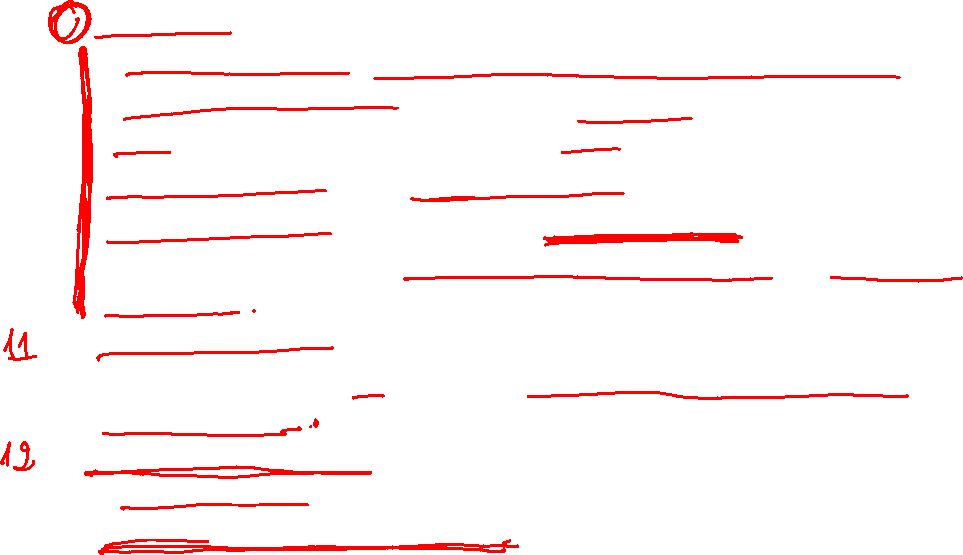 11
12